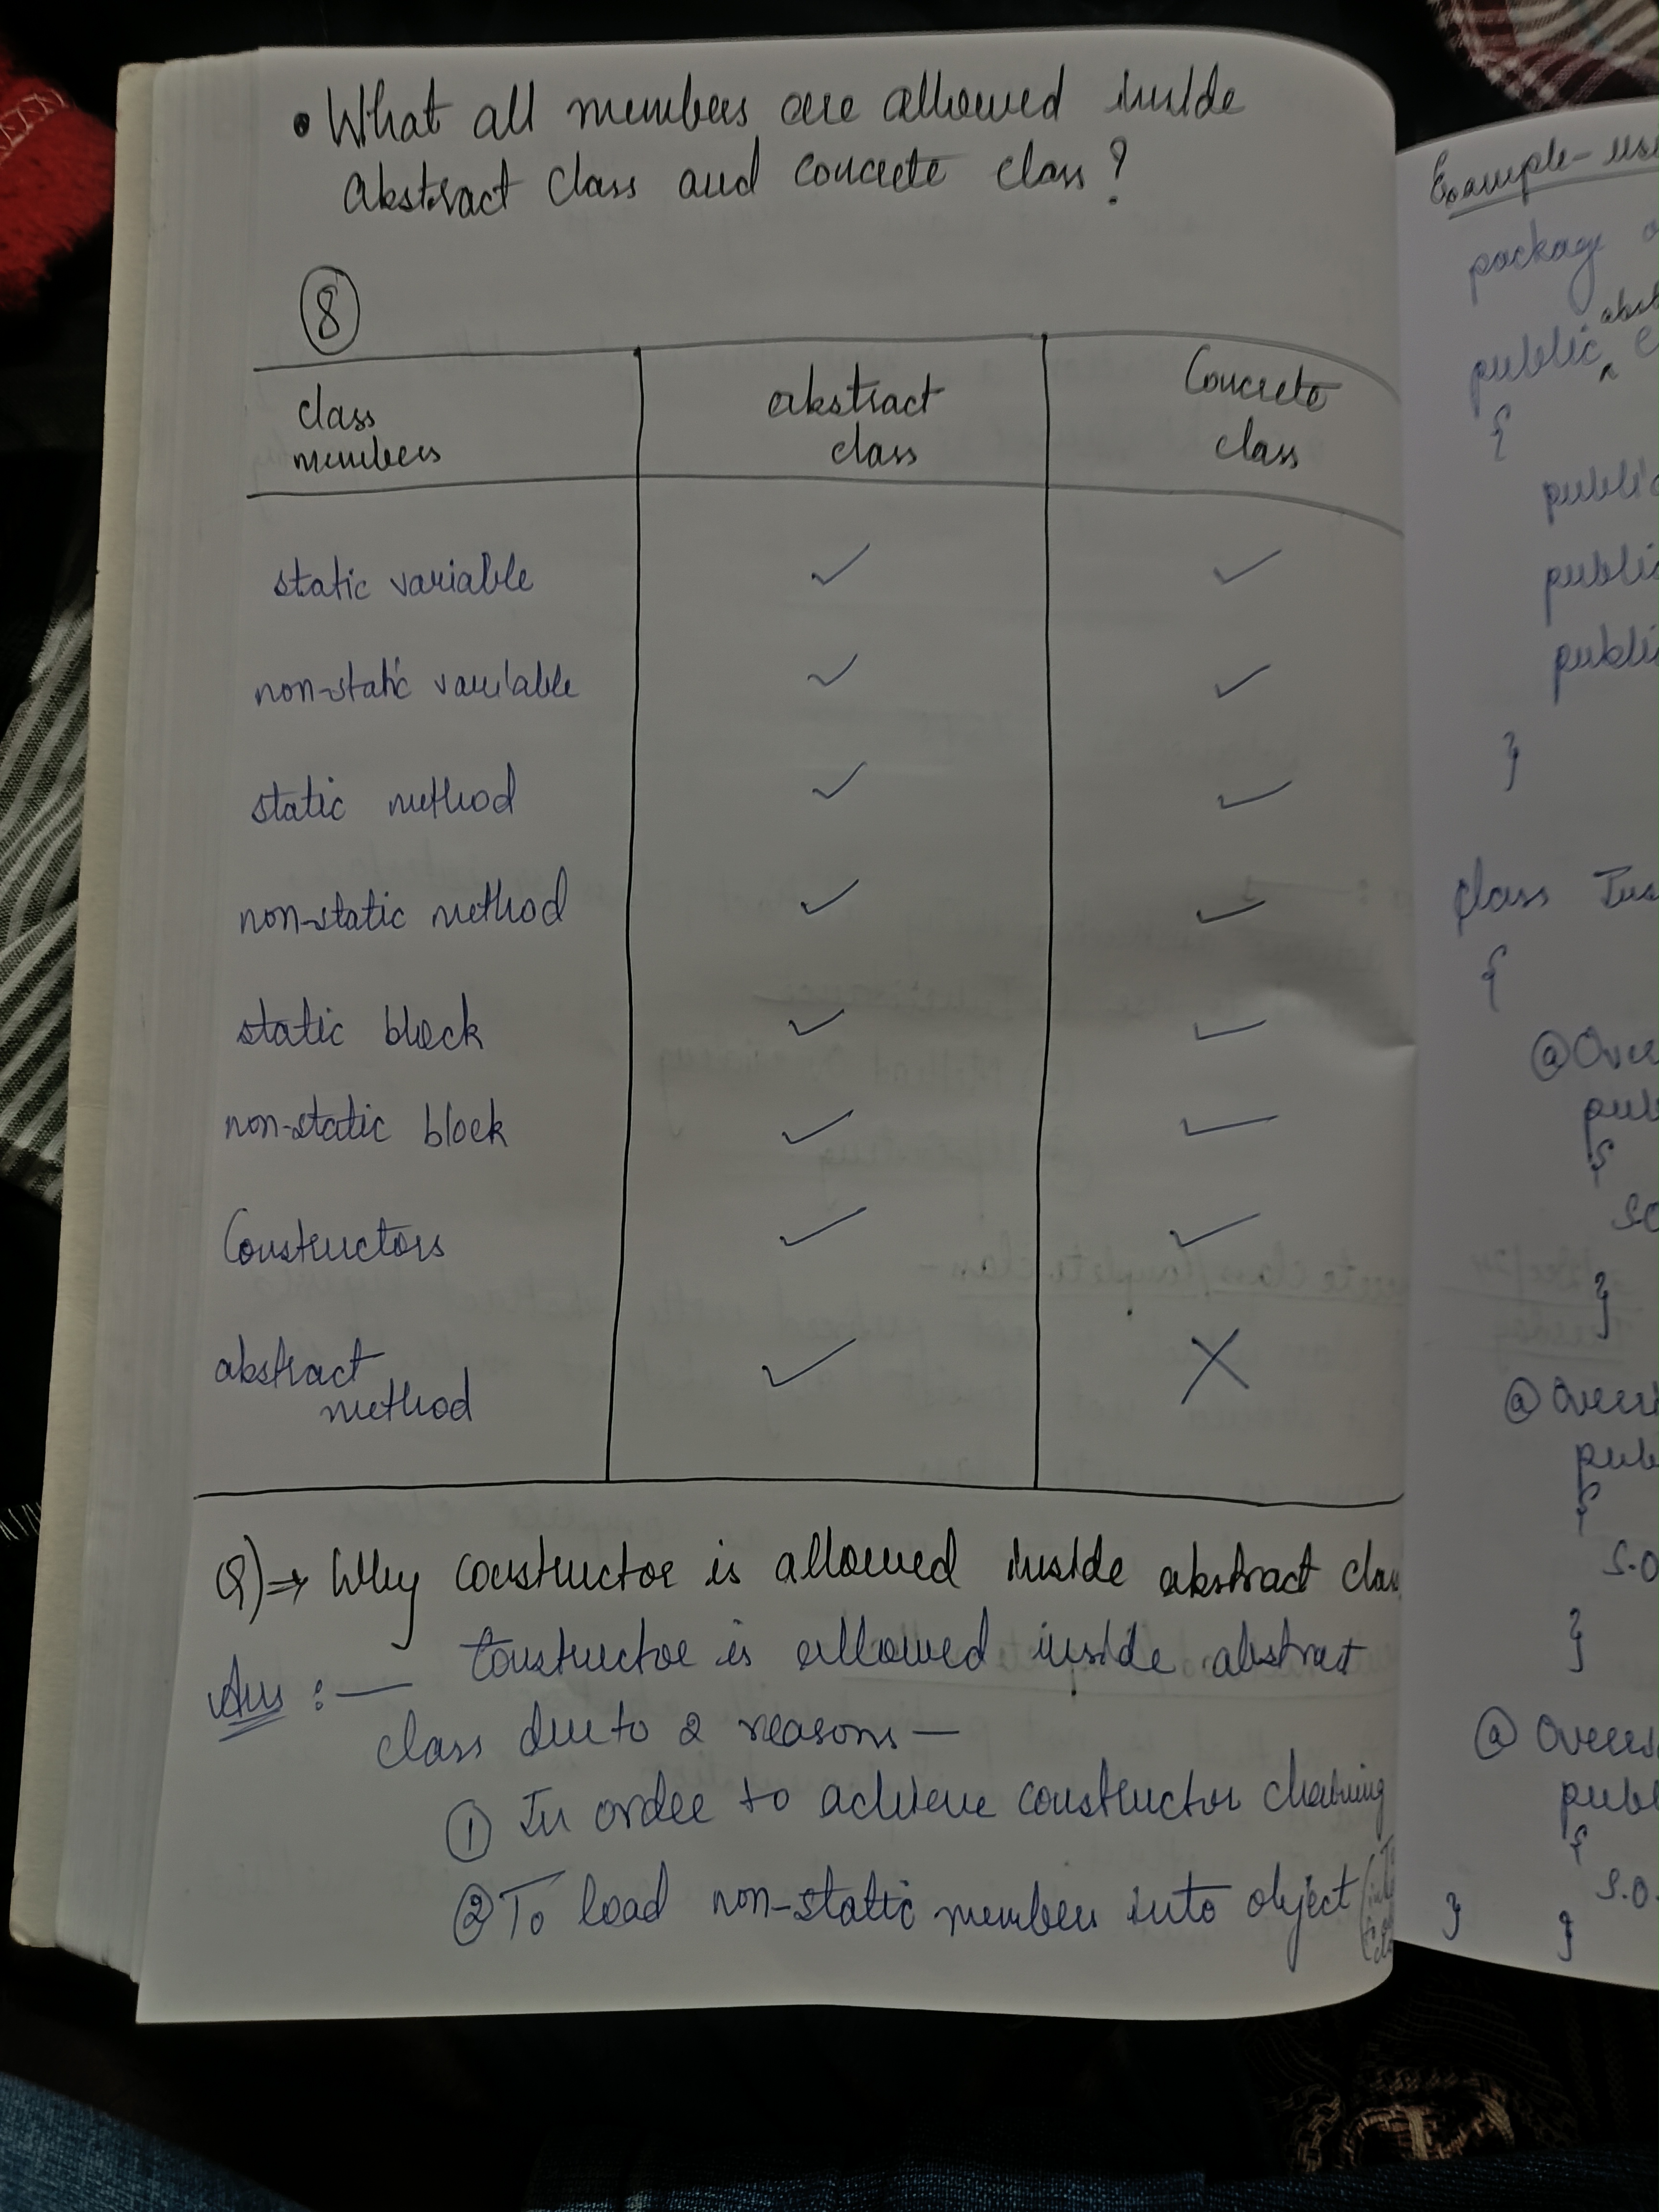 • What all members are allowed inside
abstract class and concrete class?
8
class
members
abstract
class
Concrete
class
static variable ✓ ✓
non-static variable ✓ ✓
static method ✓ ✓
non-static method ✓ ✓
static block ✓ ✓
non-static block ✓ ✓
Constructors ✓ ✓
abstract
method ✓ X
Q)⇒ Why constructor is allowed inside abstract
Ans :— Constructor is allowed inside abstract
class due to 2 reasons —
① In order to achieve constructor chaining
② To load non-static members into object
Example-
package
public
{
public
}
class
{
}
}
}
}
}